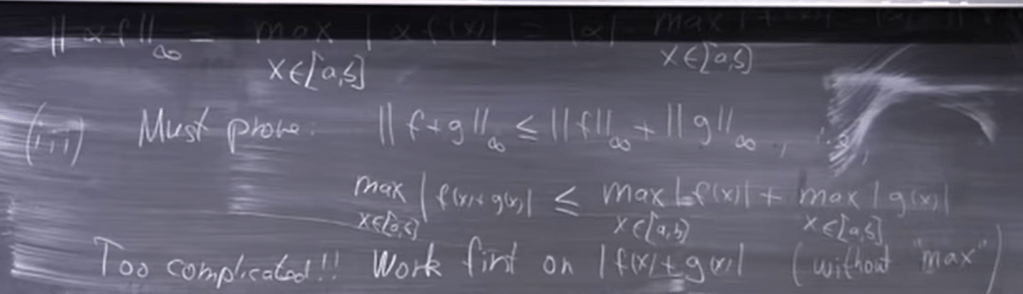 ||αf||∞ = max |αf(x)| = |α| max
x∈[a,b] x∈[a,b]
(iii) Must prove: ||f+g||∞ ≤ ||f||∞ + ||g||∞, i.e.
max |f(x)+g(x)| ≤ max |f(x)| + max |g(x)|
x∈[a,b] x∈[a,b] x∈[a,b]
Too complicated!! Work first on |f(x)+g(x)| (without "max")